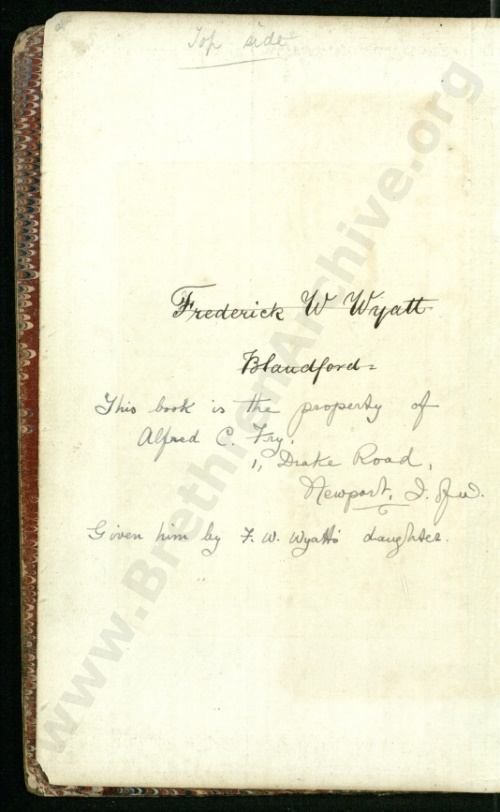 Top side
Frederick W Wyatt
Blandford=
This book is the property of
Alfred C. Fry.
1, Drake Road,
Newport, I. of W.
Given him by F. W. Wyatt's daughter.
www.BrethrenArchive.org